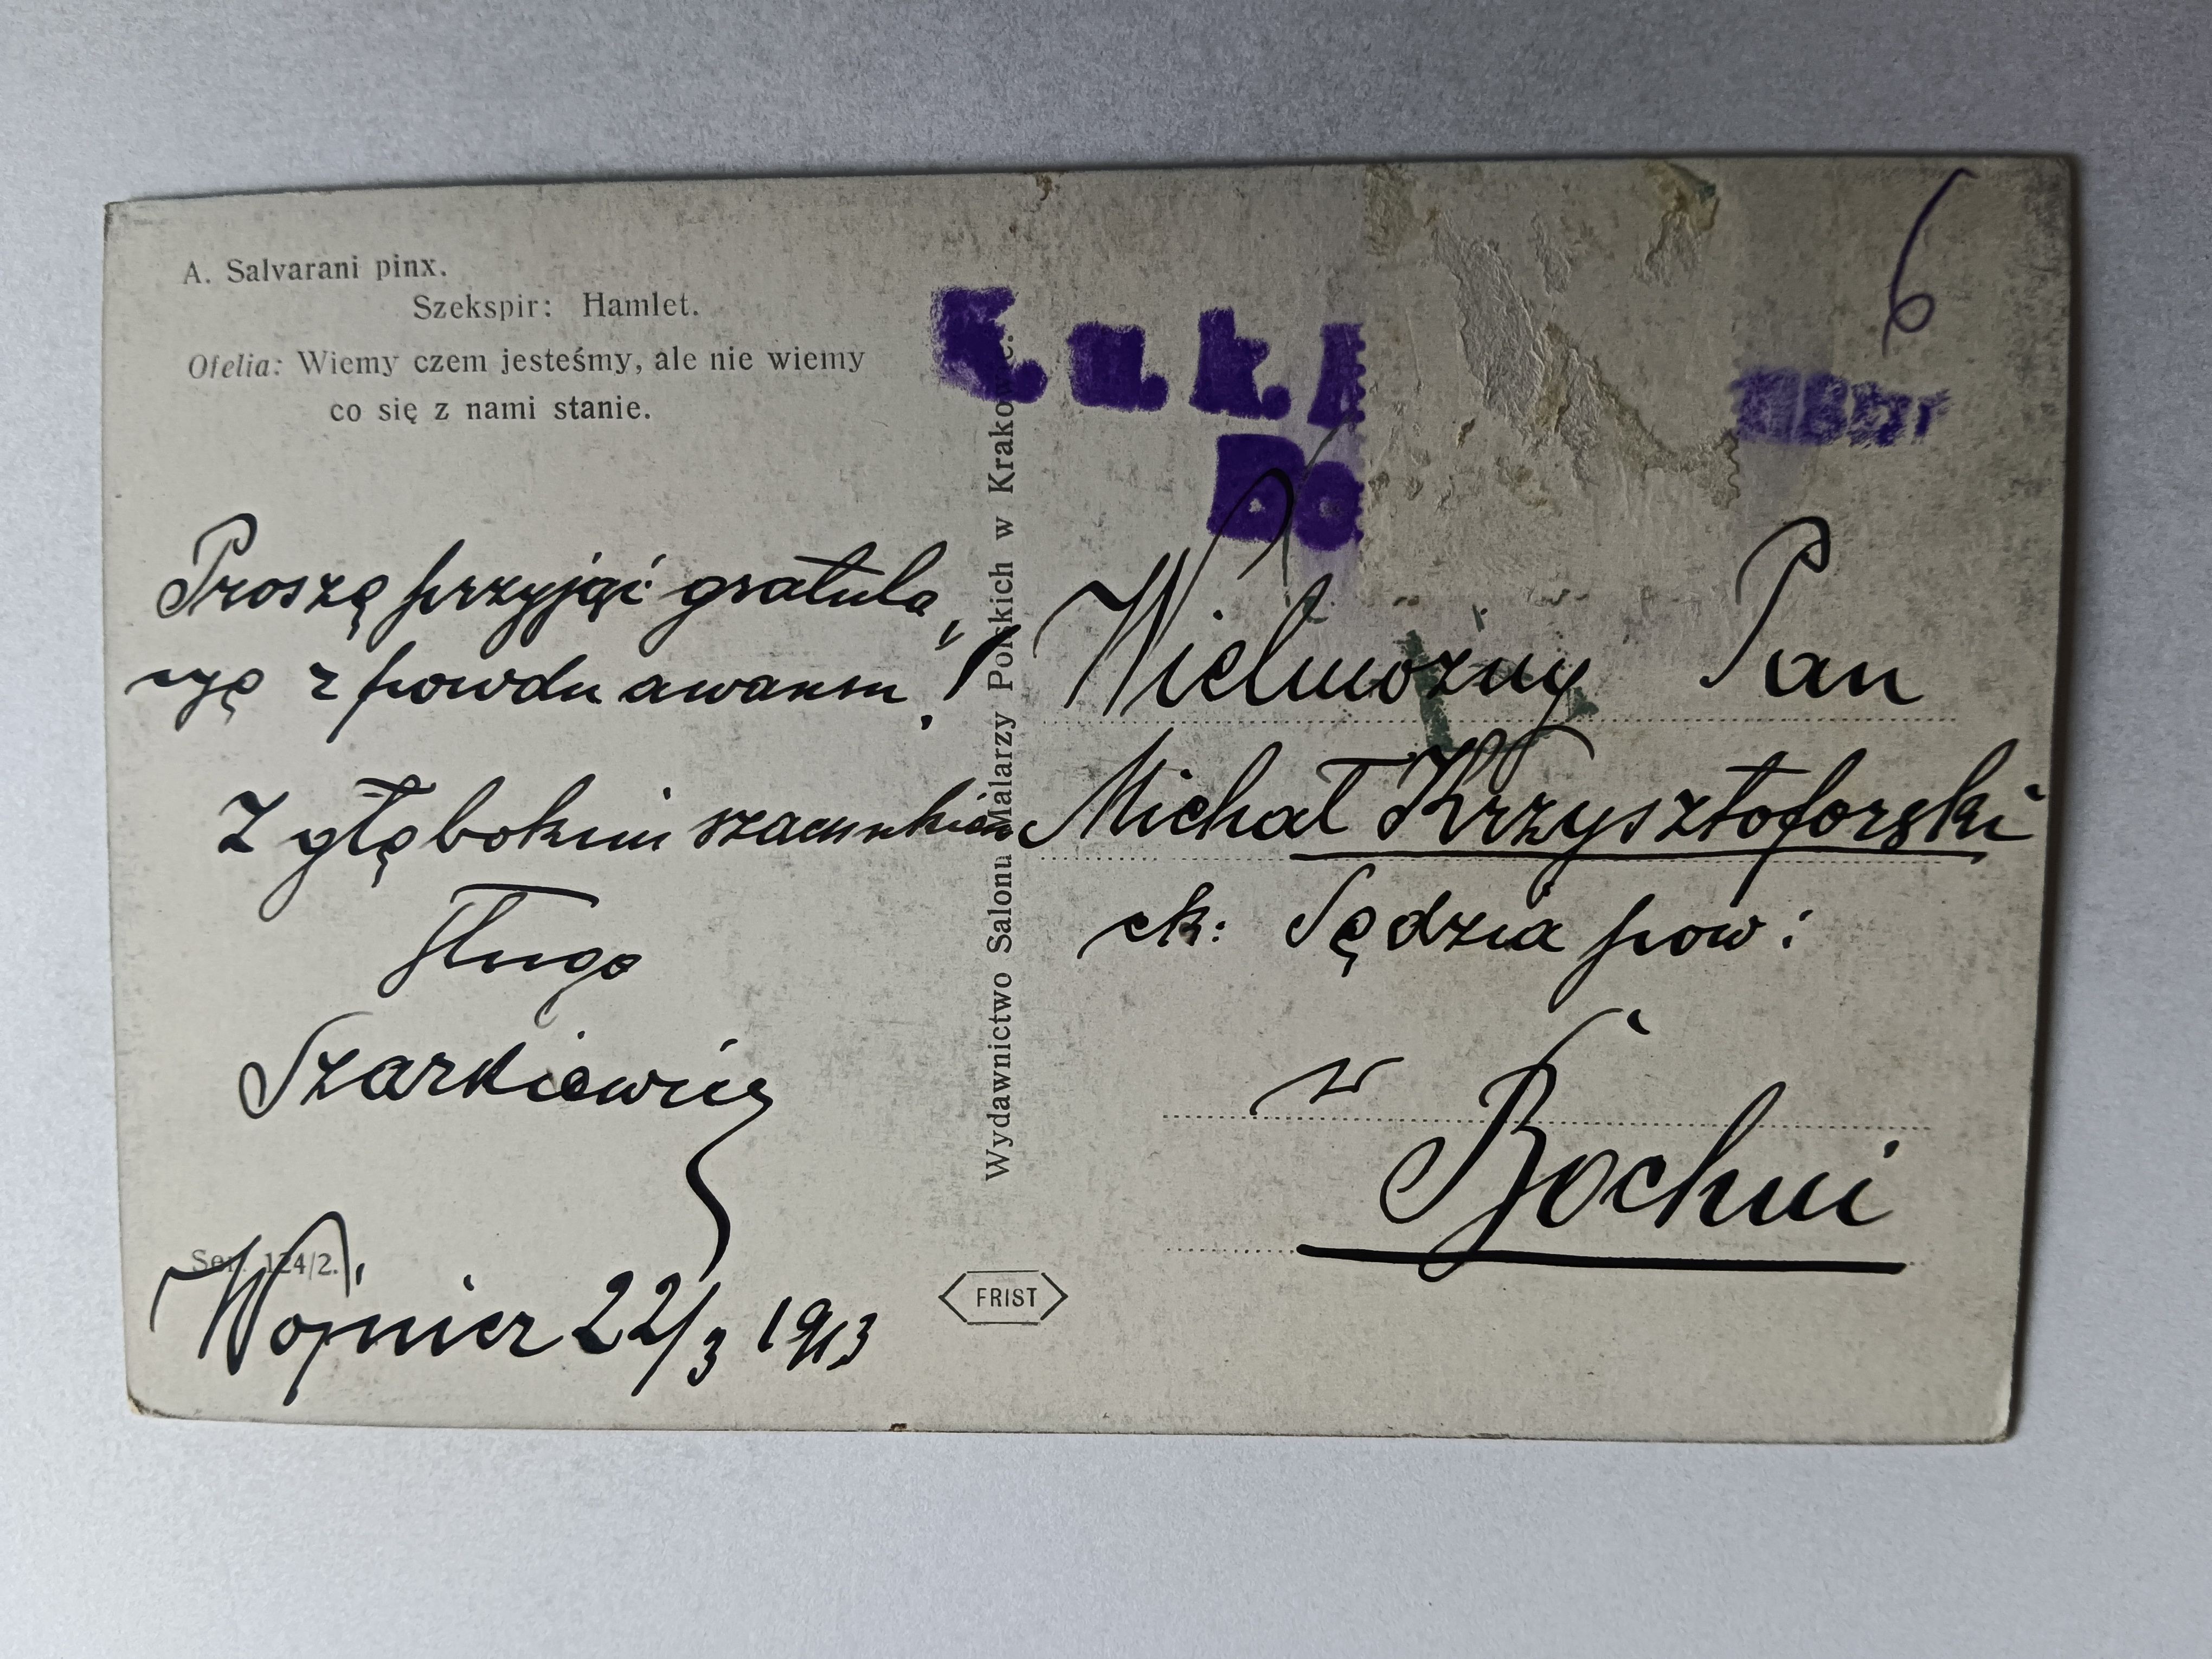 A. Salvarani pinx.
Szekspir: Hamlet.
Ofelia: Wiemy czem jesteśmy, ale nie wiemy
co się z nami stanie.
Proszę przyjąć gratula
cyę z powdu awansu!
Z głębokim szacunkiem
sługa
Szarkiewicz
Ser. 124/2.
Wojnicz 22/3 1913
Wydawnictwo Salonu Malarzy Polskich w Krakowie.
FRIST
6
K. u. k.
Do
Wielmożny Pan
Michał Krzysztoforski
ck: Sędzia pow:
w
Bochni